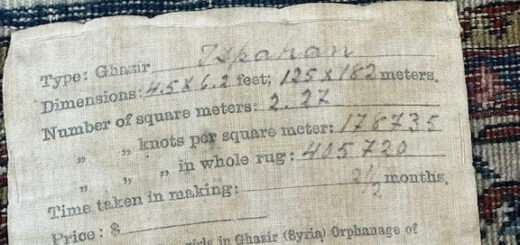 Type: Ghazir Ispahan
Dimensions: 4.5 x 6.2 feet; 125 x 182 meters.
Number of square meters: 2.27
„ „ knots per square meter: 178735
„ „ „ in whole rug: 405720
Time taken in making: 2½ months.
Price: $
girls in Ghazir (Syria) Orphanage of